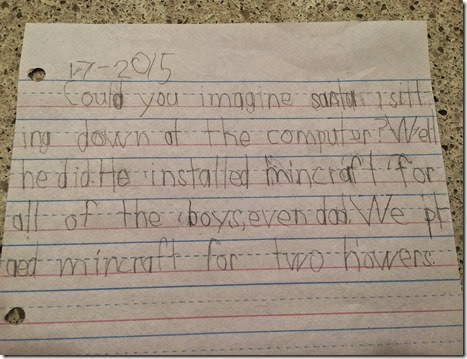 1-7-2015
Could you imagine santa sitt
ing down at the computer? Well
he did. He installed mincraft for
all of the boys, even dad. We pl
aed mincraft for two howers.